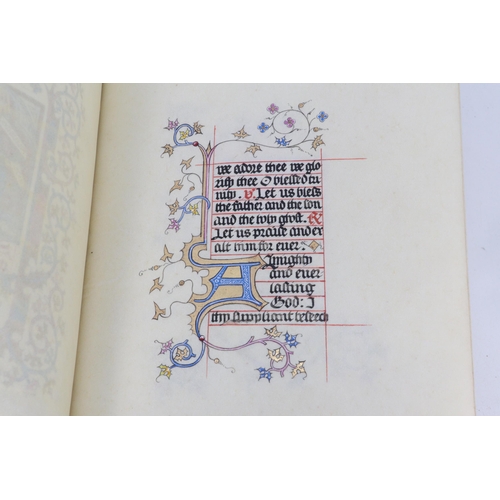 we adore thee we glo
rify thee O blessed tri
nity. V Let us bless
the father and the son
and the holy ghost. R
Let us praise and ex
alt him for ever.
Almighty
and ever
lasting
God: I
thy supplicant beseech